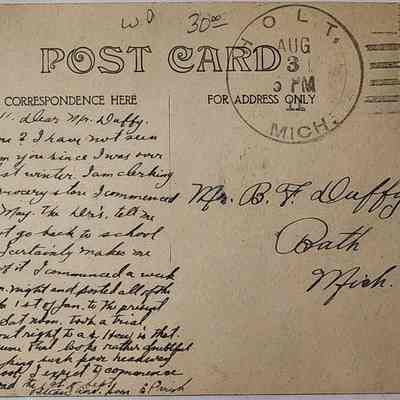 WD 30⁰⁰
POST CARD
HOLT,
AUG
3
3 PM
11
MICH.
CORRESPONDENCE HERE
FOR ADDRESS ONLY
Dear Mr. Duffy.
? I have not seen
you since I was over
st winter. I am clerking
rocery store I commenced
May. The Dr's. tell me
t go back to school
certainly makes me
of it I commenced a week
night and posted all of the
1st of Jan. to the present
Sat noon. Took a trial
out right to a ¢. How is that
one that looks rather doubtful
such poor headway
I expect to commence
Mr. B. F. Duffy
Bath
Mich.